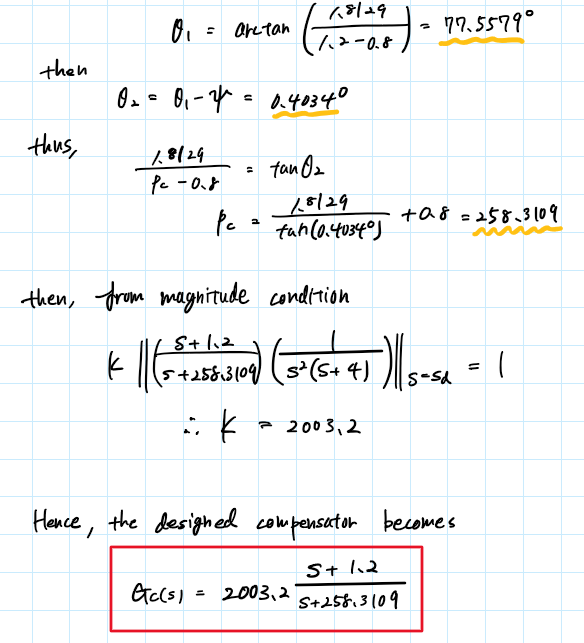 θ₁ = arctan (1.8129 / 1.2-0.8) = 77.5579°
then
θ₂ = θ₁ - ψ = 0.4034°
thus,
1.8129 / Pc - 0.8 = tanθ₂
Pc = 1.8129 / tan(0.4034°) + 0.8 = 258.3109
then, from magnitude condition
K ‖(s+1.2 / s+258.3109) (1 / s²(s+4))‖ s=sd = 1
∴ K = 2003.2
Hence, the designed compensator becomes
Gc(s) = 2003.2 s+1.2 / s+258.3109